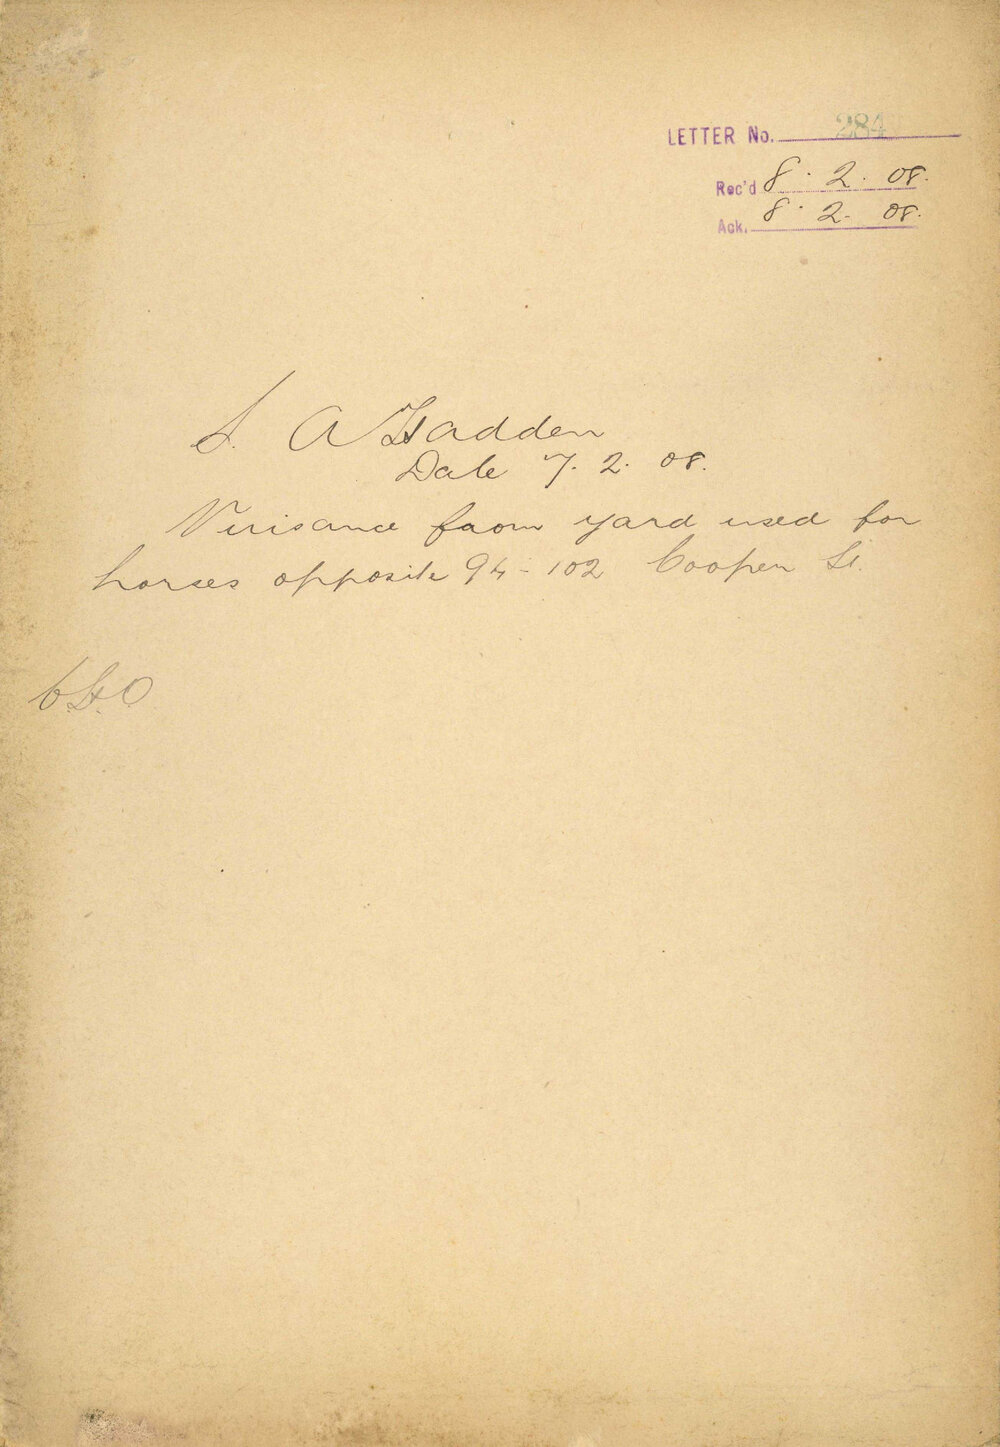 LETTER No. 284
Rec'd 8. 2. 08.
Ack. 8. 2. 08.
S. A Hadden
Date 7. 2. 08.
Nuisance from yard used for
horses opposite 94-102 Cooper St.
C.H.O